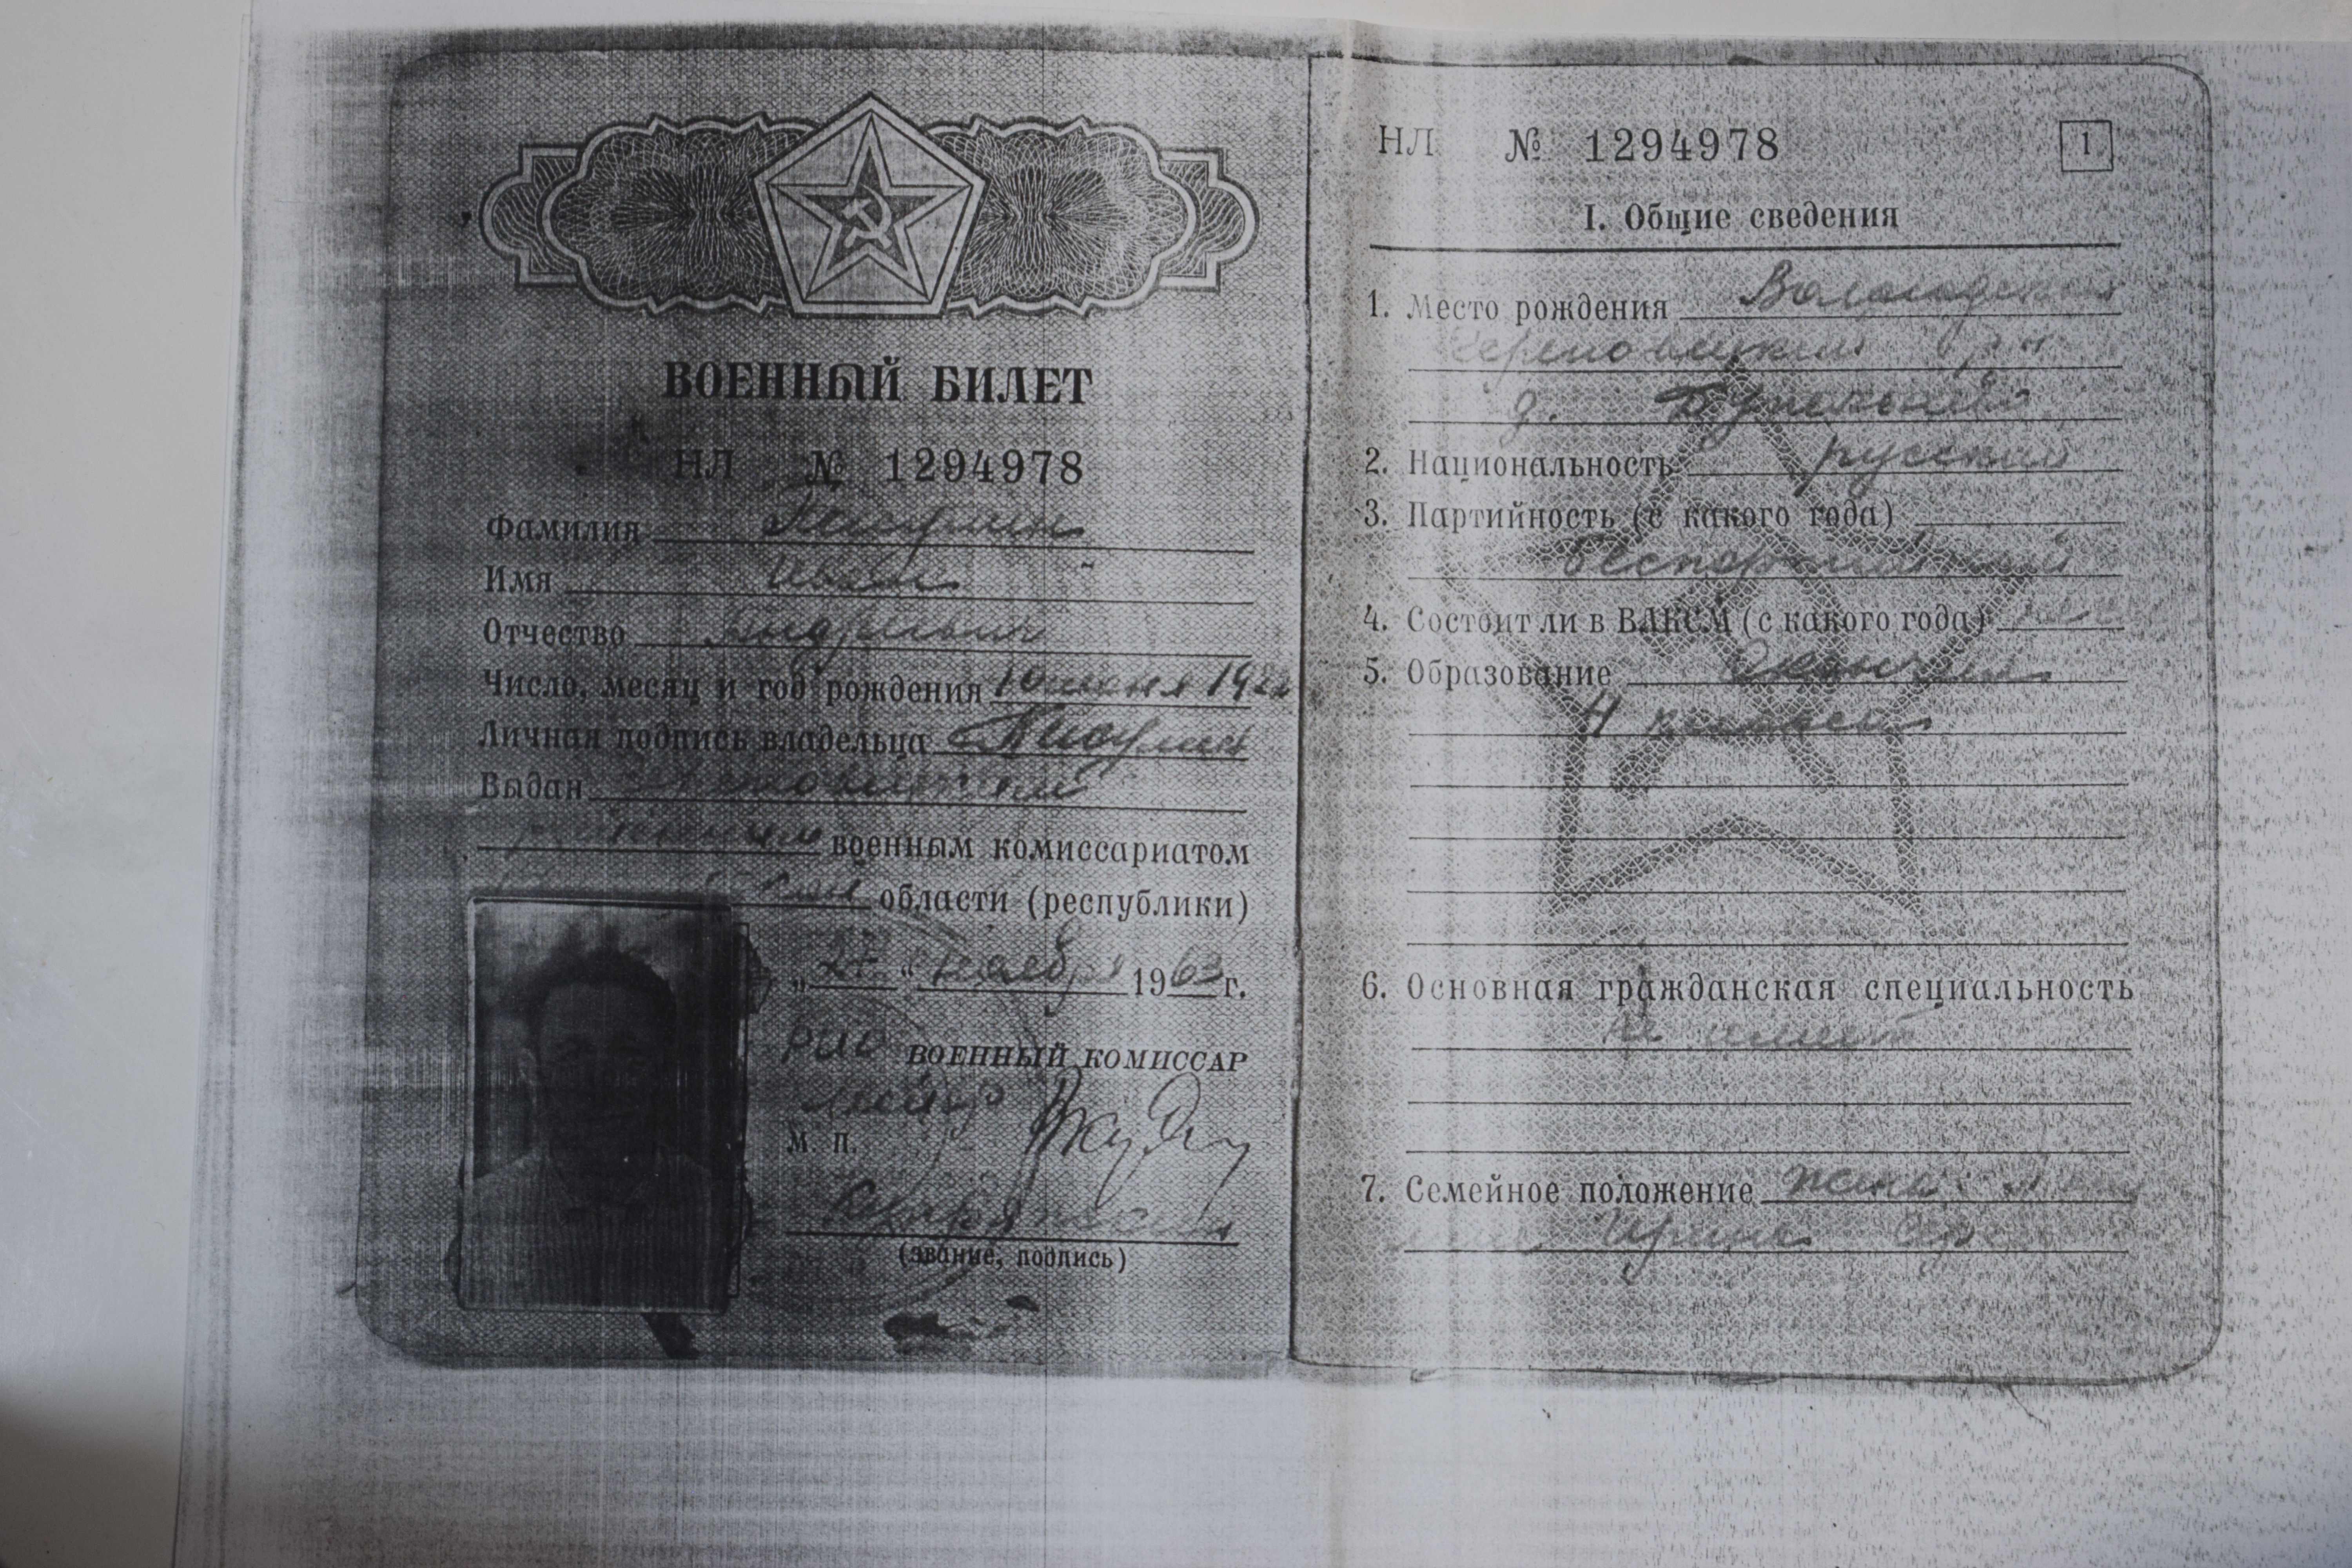 ВОЕННЫЙ БИЛЕТ
НЛ № 1294978
Фамилия
Имя Иван
Отчество Андреевич
Число, месяц и год рождения 1922
Личная подпись владельца
Выдан Череповецким
районным военным комиссариатом
области (республики)
„27“ ноября 1963 г.
ВОЕННЫЙ КОМИССАР
майор
М. п.
(звание, подпись)
НЛ № 1294978
1
I. Общие сведения
1. Место рождения Вологодская
Череповецкий р-н
д.
2. Национальность русский
3. Партийность (с какого года)
беспартийный
4. Состоит ли в ВЛКСМ (с какого года)
5. Образование окончил
4 класса
6. Основная гражданская специальность
не имеет
7. Семейное положение жена:
Ирина